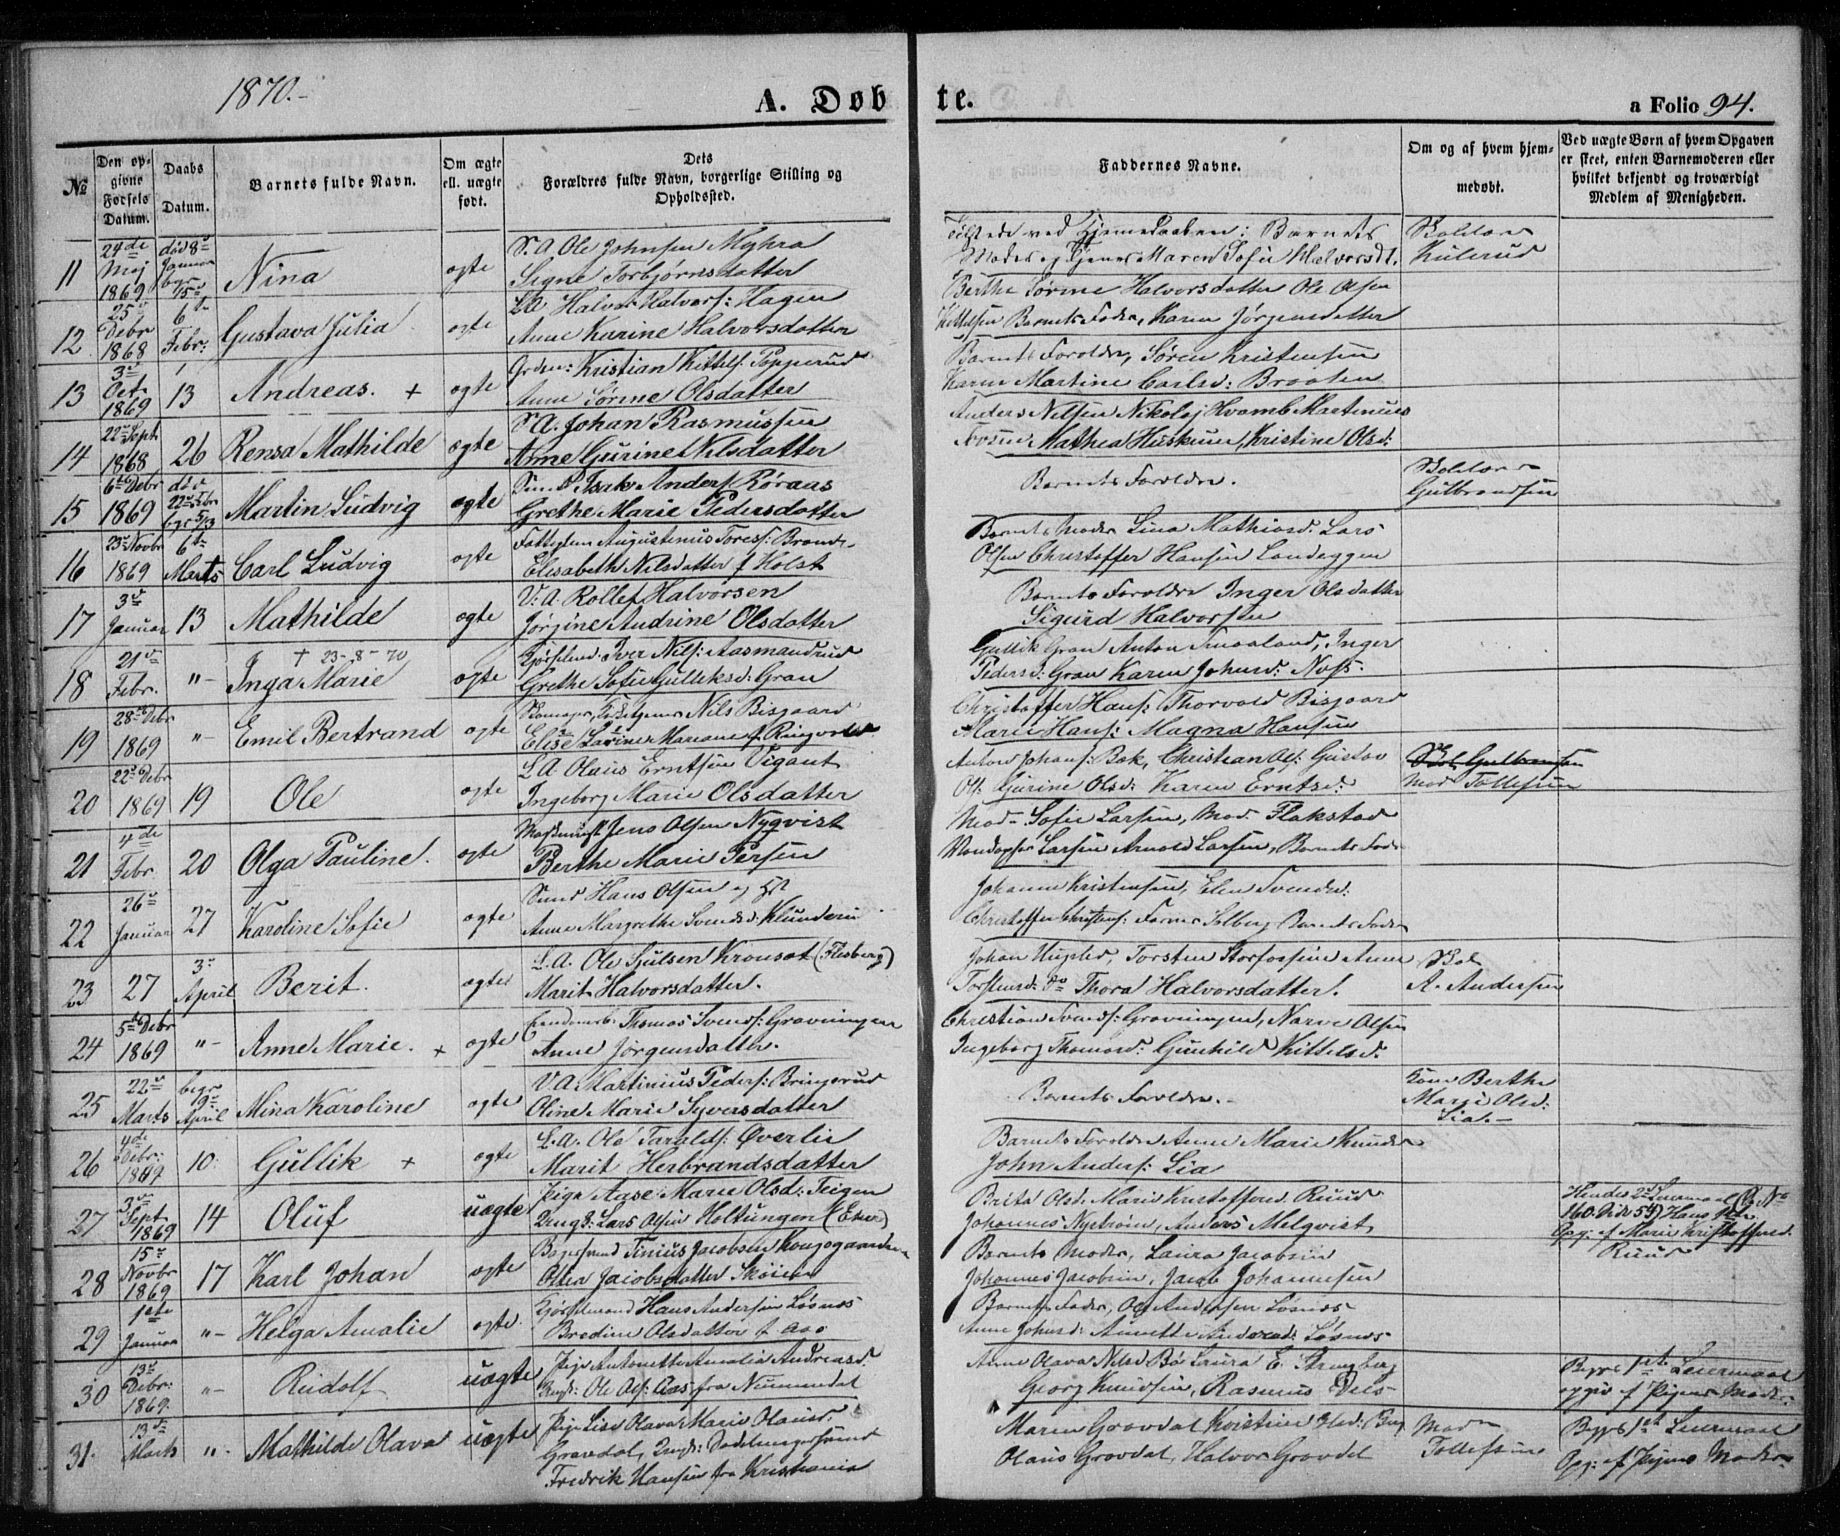 1870.-
A. Døb
te.
a Folio 94.
№
Den op-
givne
Fødsels
Datum.
Daabs
Datum.
Barnets fulde Navn.
Om ægte
ell. uægte
født.
Dets
Forældres fulde Navn, borgerlige Stilling og
Opholdssted.
Faddernes Navne.
Om og af hvem hjem-
medøbt.
Ved uægte Børn af hvem Opgaven
er skeet, enten Barnemoderen eller
hvilket bekjendt og troværdigt
Medlem af Menigheden.
11
24de
Maj
1869
død 8de
Januar
begr
15de
Nina
ægte
S. A. Ole Johnsen Myhra
Signe Torbjørnsdatter
Tilstede ved Hjemedaaben: Barnets
Moder og Maren Sofie Halvorsdt.
Kulerud
12
25de
Debr
1868
6te
Febr:
Gustava Julia
ægte
Halvor Halvors: Hagen
Anne Karine Halvorsdatter
Berthe Sørine Halvorsdatter Ole Olsen
Kittelsen Barnets Fader, Karen Jørgensdatter
13
3de
Oct.
1869
13
Andreas. +
ægte
Kristian Kittels: Popperud
Anne Sørine Olsdatter
Barnets Foroldre, Søren Kristensen
Karen Martine Carlsd: Braaten
14
22de Sept
1868
26
Rensa Mathilde
ægte
S. A. Johan Rasmussen
Anne Gurine Nilsdatter
Anders Nilsen Nikolaj Hvamb Martinius
Mathea Huskun, Kristine Olsd:
15
6te Debr
1869
død
22de Febr
begr 5/3
Martin Ludvig
ægte
Isak Anders: Røraas
Grethe Marie Pedersdatter
Barnets Foroldre.
Gulbrandsen
16
23de Novbr
1869
6te
Marts
Carl Ludvig
ægte
Fattiglem Augustinus Tores: Brand-
Elisabeth Nilsdatter f Holst
Barnets Moder Lina Mathiasd. Lars
Olsen Christoffer Hansen Landeggen
17
3de
Januar
13
Mathilde
ægte
V. A. Rollef Halvorsen
Jørgine Andrine Olsdatter
Barnets Foroldre Inger Olsdatter
Sigurd Halvorsen
18
21de
Febr.
"-
+ 23-8-70
Inga Marie
ægte
Iver Nils: Aasmandrud
Grethe Sofie Gulliksd: Gran
Gullik Gran Anton Inger
Pedersd: Gran Karen Johnsd: Noss.
19
28de Debr
1869
"-
Emil Bertrand
ægte
Nils Bisgaard
Elise Lovine Mariane f Ringvold
Christoffer Hans: Thorvald Bisgaard
Marie Hans: Magna Hansen
20
22de Debr
1869
19
Ole
ægte
L. A. Olaus Erntsen Vigant
Ingeborg Marie Olsdatter
Anton Johans: Bak, Christian Ols: Gustav
Ols: Gurine Olsd: Karen Erntsd:
Mad Tollefsen
21
4de
Febr.
20
Olga Pauline.
ægte
Jens Olsen Nyqvist
Berthe Marie Persen
Mad- Sofie Larsen, Mad- Flakstad
Larsen Arnold Larsen, Barnets Fader
22
26de
Januar
27
Karoline Sofie
ægte
Hans Olsen
Anne Margrethe Svendsd: Klunderu
Johanne Kristensen, Elen Svendsd:
Christoffer Christens: Solberg Barnets Fader
23
27
3de
April
Berit.
ægte
L. A. Ole Gulsen Kronsat (Flesberg)
Marit Halvorsdatter.
Johan Torsten Anne
Torstensd: Do Thora Halvorsdatter.
A. Andersen
24
5te Debr
1869
"-
Anne Marie. +
ægte
Thomas Svends: Gravningen
Anne Jørgensdatter.
Christian Svends: Gravningen, Narve Olsen
Ingeborg Thomasd: Gunhild Kittelsd.
25
22de
Marts
begr
9de
April
Mina Karoline
ægte
V. A. Martinius Peders: Bringerud
Oline Marie Syversdatter
Barnets Foroldre.-
Kone Berthe
Marie Olsd:
Lia.-
26
4de
Debr:
1869
10.
Gullik +
ægte
L. A. Ole Taralds: Øverlie
Marit Herbrandsdatter
Barnets Foroldre Anne Marie Knudsd
John Anders: Lia
27
3de
Sept
1869
14
Oluf
uægte
Pige Aase Marie Olsd: Teigen
Ungk: Lars Olsen Holtungen (Eker)
Brita Olsd. Marie Kristoffersd. Ruud
Johannes Nystrøm, Anders Melqvist,
Hendes 2det Leiermaal
Opg: af Marie Kristoffersd.
Ruud
28
15de
Novbr
1869
17
Karl Johan
ægte
Tinius Jacobsen Kongsgaarden
Jacobsdatter Skoien
Barnets Moder, Laura Jacobsen
Johannes Jacobsen, Jacob Johannesen
29
1ste
Januar
"-
Helga Amalie
ægte
Kjørselsmand Hans Andersen Løsnæs
Bredine Olsdatter f Aas
Barnets Fader, Ole Andersen Løsnæs
Anne Johnsd: Annette Andersd: Løsnæs
30
13de
Debr:
1869.
"-
Rudolf
uægte
Pige Antonette Amalia Andreasd.
Ungk: Ole Ols: Aas fra Nummedal
Anne Olava Nilsd Bø Laura E. Strengberg
Georg Knudsen, Rasmus
Begges 1ste Leiermaal
opgiv af Pigens Moder.
31.
13de
Marts
"-
Mathilde Olava
uægte
Pige Lise Olava Marie Olausd.
Gravdal, Ungk: Sadelmagersvend
Fredrik Hansen fra Kristiania
Maren Gravdal Kristine
Olaus Gravdal, Halvor Gravdal
Mad
Tollefsen
Begges 1ste Leiermaal
Opg: af Pigens Moder